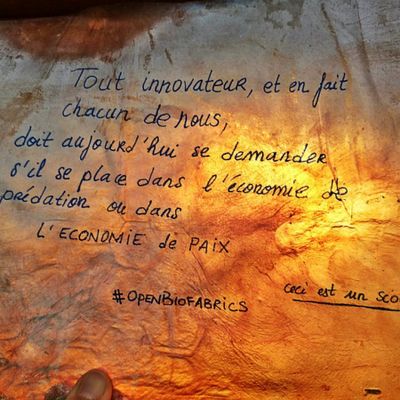 Tout innovateur, et en fait
chacun de nous,
doit aujourd'hui se demander
s'il se place dans l'économie de
prédation ou dans
L'ECONOMIE de PAIX
#OPENBIOFABRICS
ceci est un